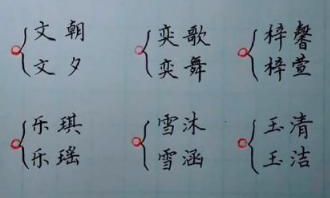 文朝 奕歌 梓馨
文夕 奕舞 梓萱
乐琪 雪沐 玉清
乐瑶 雪涵 玉洁